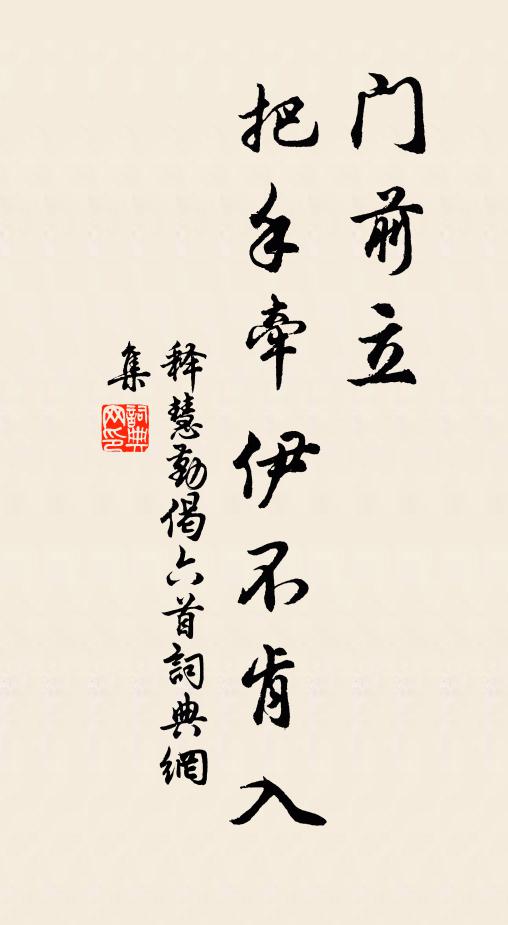 门前立
把手牵伊不肯入
释慧勤偈六首詞典網
集
詞典网印